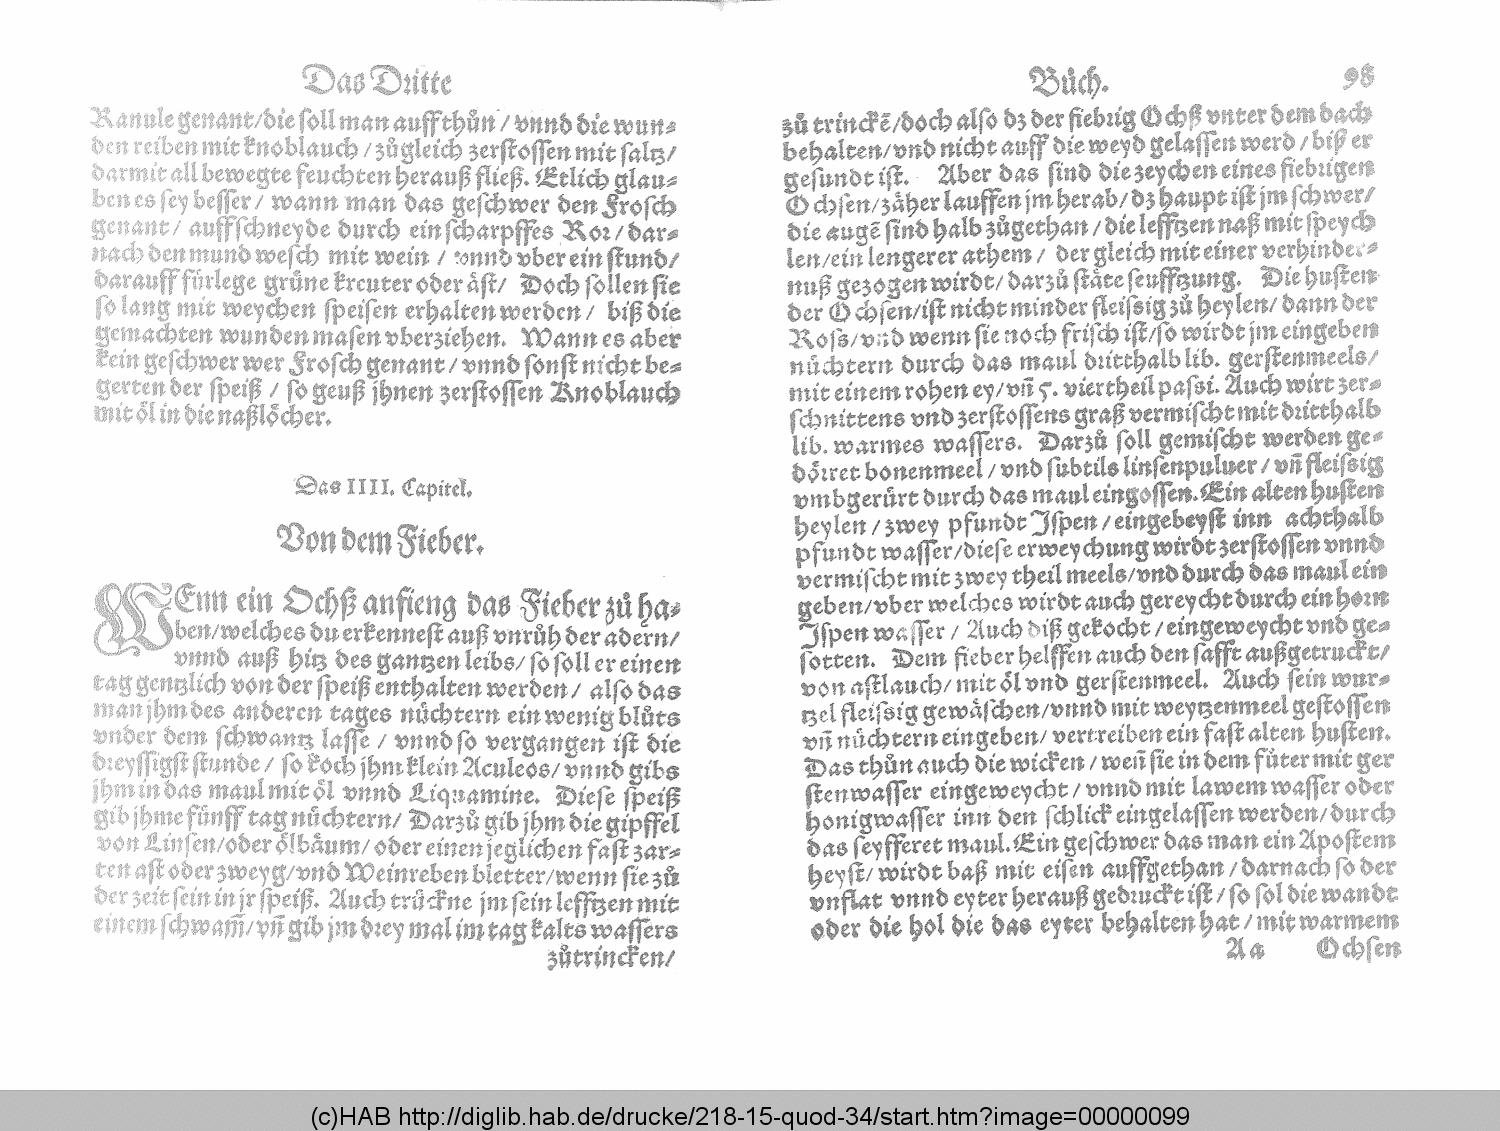 Das Dritte
Ranule genant/die soll man auffthůn / vnnd die wun⸗
den reiben mit knoblauch / zůgleich zerstossen mit saltz/
darmit all bewegte feuchten herauß fließ. Etlich glau⸗
ben es sey besser / wann man das geschwer den Frosch
genant / auffschneyde durch ein scharpffes Ror / dar⸗
nach den mund wesch mit wein / vnnd vber ein stund/
darauff fürlege grůne kreuter oder åst/ Doch sollen sie
so lang mit weychen speisen erhalten werden / biß die
gemachten wunden masen vberziehen. Wann es aber
kein geschwer wer Frosch genant / vnnd sonst nicht be⸗
gerten der speiß / so geuß jhnen zerstossen Knoblauch
mit ôl in die naßlôcher.
Das IIII. Capitel.
Von dem Fieber.
WEnn ein Ochß anfieng das Fieber zů ha⸗
ben/welches du erkennest auß vnrůh der adern/
vnnd auß hitz des gantzen leibs/ so soll er einen
tag gentzlich von der speiß enthalten werden / also das
man jhm des anderen tages nůchtern ein wenig blůts
vnder dem schwantz lasse / vnnd so vergangen ist die
dreyssigst stunde / so koch jhm klein Aculeos/ vnnd gibs
jhm in das maul mit ôl vnnd Liquamine. Diese speiß
gib jhme fünff tag nůchtern/ Darzů gib jhm die gipffel
von Linsen/oder ôlbåum/ oder einen jeglichen fast zar⸗
ten ast oder zweyg/vnd Weinreben bletter/wenn sie zů
der zeit sein in jr speiß. Auch trůckne jm sein lefftzen mit
einem schwam̃/ vñ gib jm drey mal im tag kalts wassers
zůtrincken/
Bůch. 98
zů trinckẽ/doch also dz der fiebrig Ochß vnter dem dach
behalten/vnd nicht auff die weyd gelassen werd / biß er
gesundt ist. Aber das sind die zeychen eines fiebrigen
Ochsen/zåher lauffen jm herab/ dz haupt ist jm schwer/
die augẽ sind halb zůgethan / die lefftzen naß mit speych
len/ein lengerer athem / der gleich mit einer verhinder⸗
nuß gezogen wirdt/ darzů ståte seufftzung. Die husten
der Ochsen/ist nicht minder fleissig zů heylen/ dann der
Ross/vnd wenn sie noch frisch ist/so wirdt jm eingeben
nůchtern durch das maul dritthalb lib. gerstenmeels/
mit einem rohen ey/vñ 5. viertheil passi. Auch wirt zer⸗
schnittens vnd zerstossens graß vermischt mit dritthalb
lib. warmes wassers. Darzů soll gemischt werden ge⸗
dôrret bonenmeel / vnd subtils linsenpuluer / vñ fleissig
vmbgerůrt durch das maul eingossen. Ein alten husten
heylen / zwey pfundt Jspen / eingebeyst inn achthalb
pfundt wasser/diese erweychung wirdt zerstossen vnnd
vermischt mit zwey theil meels/vnd durch das maul ein
geben/vber welches wirdt auch gereycht durch ein horn
Jspen wasser / Auch diß gekocht / eingeweycht vnd ge⸗
sotten. Dem fieber helffen auch den safft außgetruckt/
von astlauch/ mit ôl vnd gerstenmeel. Auch sein wur⸗
tzel fleissig gewåschen/vnnd mit weytzenmeel gestossen
vñ nůchtern eingeben/ vertreiben ein fast alten husten.
Das thůn auch die wicken / weñ sie in dem fůter mit ger
stenwasser eingeweycht / vnnd mit lawem wasser oder
honigwasser inn den schlick eingelassen werden/ durch
das seyfferet maul. Ein geschwer das man ein Apostem
heyst/ wirdt baß mit eisen auffgethan / darnach so der
vnflat vnnd eyter herauß gedruckt ist / so sol die wandt
oder die hol die das eyter behalten hat / mit warmem
Aa Ochsen
(c)HAB http://diglib.hab.de/drucke/218-15-quod-34/start.htm?image=00000099